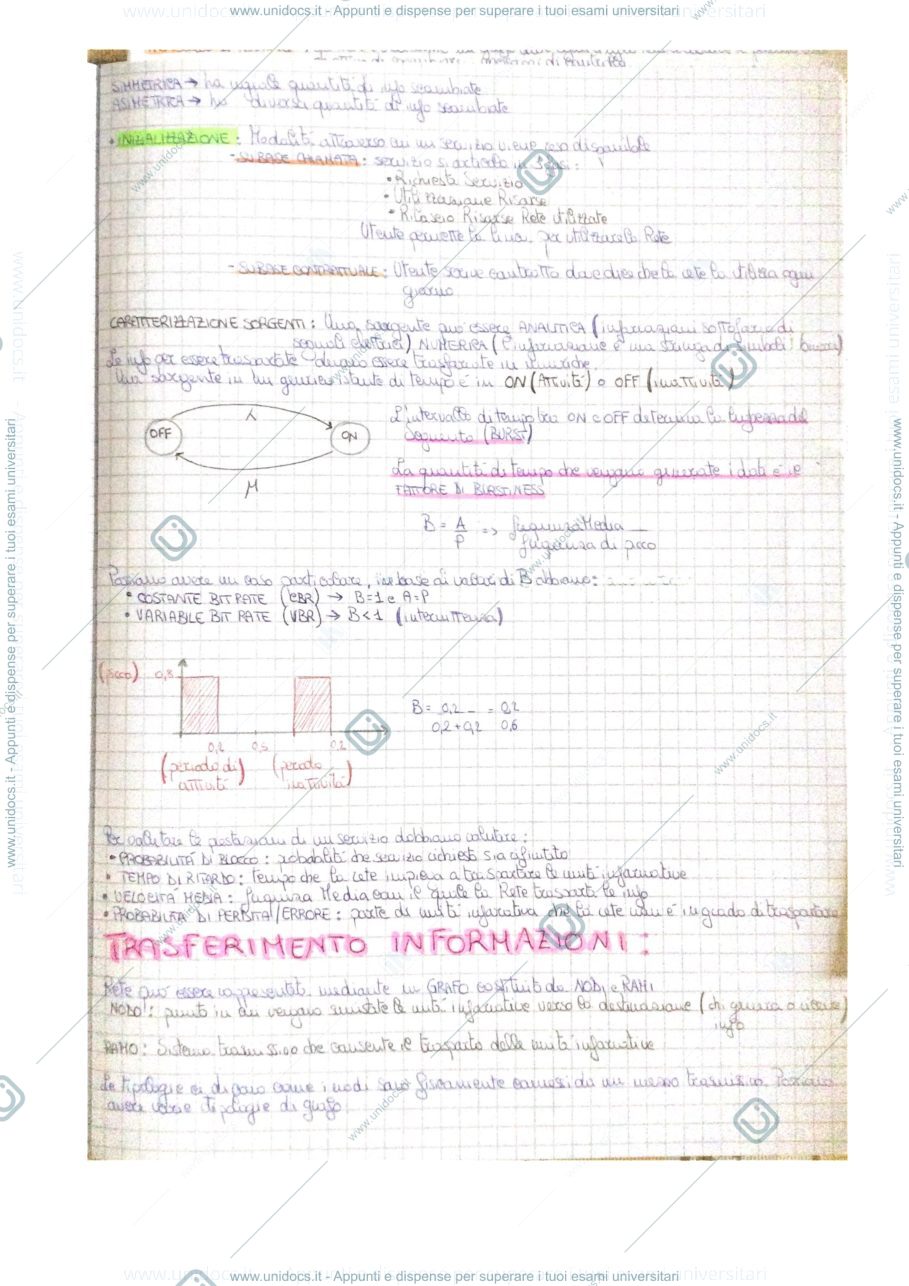 www.unidocs.it - Appunti e dispense per superare i tuoi esami universitari
SIMMETRICA → ha uguale quantità di info scambiate
ASIMETRICA → ha diversa quantità di info scambiate
• INIZIALIZZAZIONE : Modalità attraverso cui un servizio viene reso disponibile
- SU BASE CHIAMATA : servizio si articola in 3 fasi :
• Richiesta Servizio
• Utilizzazione Risorse
• Rilascio Risorse Rete utilizzate
Utente permette la linea per utilizzare la Rete
- SU BASE CONTRATTUALE : Utente scrive contratto dove dice che la rete la utilizza ogni
giorno
CARATTERIZZAZIONE SORGENTI : Una sorgente può essere ANALOGICA (informazioni sottoforma di
segnali elettrici) NUMERICA (l'informazione è una stringa di simboli binari)
Le info per essere trasportate devono essere trasformate in numeriche
Una sorgente in un generico istante di tempo è in ON (Attività) o OFF (inattività)
λ
OFF
ON
μ
L'intervallo di tempo tra ON e OFF determina la lunghezza del
Segmento (BURST)
La quantità di tempo che vengono generate i dati è il
FATTORE DI BURSTINESS
B = A/P => frequenza Media / frequenza di picco
Possiamo avere un caso particolare, in base ai valori di B abbiamo :
• COSTANTE BIT RATE (CBR) → B=1 e A=P
• VARIABILE BIT RATE (VBR) → B<1 (intermittenza)
(picco) 0,8
0,2 0,5 0,2
(periodo di attività) (periodo inattività)
B = 0,2 = 0,2
0,2+0,2 0,6
Per valutare le prestazioni di un servizio dobbiamo valutare :
• PROBABILITÀ DI BLOCCO : probabilità che servizio richiesto sia rifiutato
• TEMPO DI RITARDO : Tempo che la rete impiega a trasportare le unità informative
• VELOCITÀ MEDIA : frequenza Media con il quale la Rete trasporta le info
• PROBABILITÀ DI PERDITA/ERRORE : parte di unità informativa che la rete non è in grado di trasportare
TRASFERIMENTO INFORMAZIONI :
Rete può essere rappresentata mediante un GRAFO costituito da NODI e RAMI
NODO : punto in cui vengono smistate le unità informative verso la destinazione (chi genera o riceve)
info
RAMO : Sistema trasmissivo che consente il trasporto delle unità informative
Le tipologie ci dicono come i nodi sono fisicamente connessi da un mezzo trasmissivo. Possiamo
avere varie tipologie di grafo.
www.unidocs.it - Appunti e dispense per superare i tuoi esami universitari